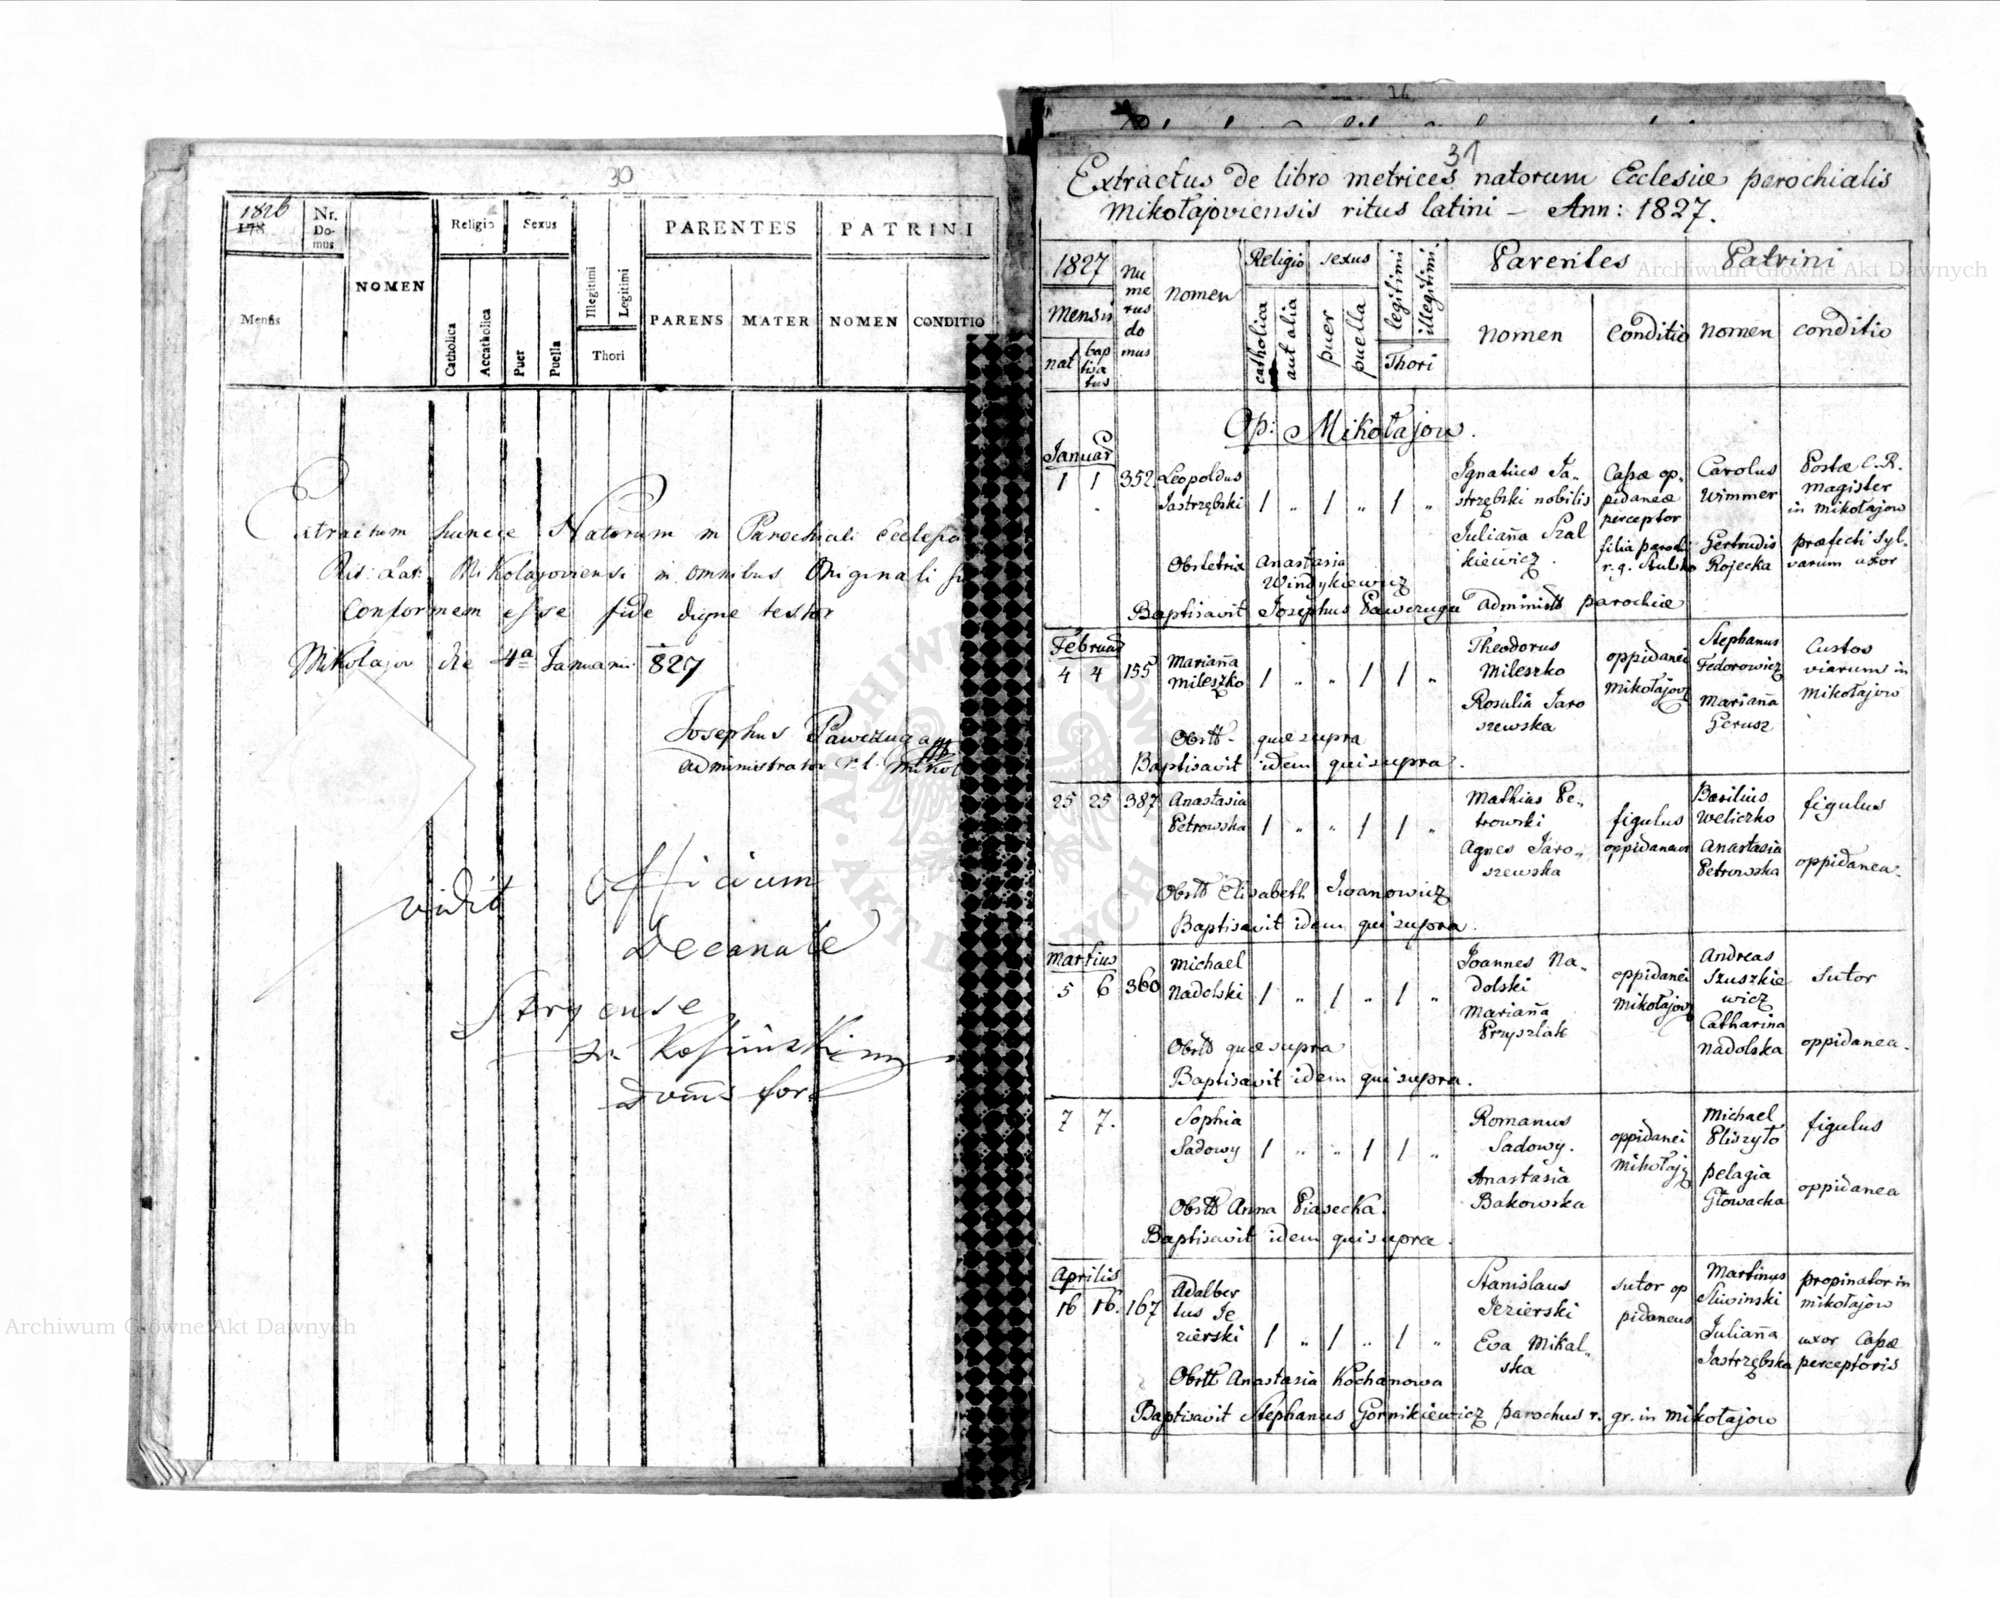 30
1826
178
Nr. Do-mus
NOMEN
Religio
Sexus
Illegitimi
Legitimi
PARENTES
PATRINI
Mensis
Catholica
Accatholica
Puer
Puella
Thori
PARENS
MATER
NOMEN
CONDITIO
Extractum huncce Natorum in Parochiali Ecclesia
Rit: Lat: Mikolajoviensi in omnibus Originali
Conformem esse fide digne testor
Mikolajow die 4a Januarii 827
Josephus Pawczuga
administrator r.l.
vidit Officium
Decanale
Stryense
31
Extractus de libro metrices natorum Ecclesiæ parochialis
Mikołajoviensis ritus latini – Ann: 1827.
1827
Mensis
nat
bap tisa tus
Nu me rus do mus
Nomen
Religio
sexus
catholica
aut alia
puer
puella
legitimi
illegitimi
Thori
Parentes
Patrini
Nomen
Conditio
Nomen
conditio
Op: Mikołajow.
Januar
1 1 352 Leopoldus Jastrzębski / „ / „ / „
Ignatius Ja„ strzębski nobilis
Juliaña Szal kiewicz.
Casæ op„ pidaneæ perceptor
filia paroch r. g.
Carolus Wimmer
Postæ C. R. Magister in Mikołajow
Gertrudis Rojecka
præfecti syl„ varum uxor
Obstetrix Anastasia Windykiewicz
Baptisavit Josephus Pawczuga administr parochiæ
Februar
4 4 155 Mariaña Mileszko / „ „ / / „
Theodorus Mileszko
Rosalia Jaro szewska
oppidanei Mikołajov
Stephanus Fedorowicz
Mariaña Gerusz
Custos viarum in Mikołajow
Obstt- quæ supra
Baptisavit idem qui supra.
25 25 387 Anastasia Petrowska / „ „ / / „
Mathias Pe„ trowski
Agnes Jaro„ szewska
figulus oppidaneus
Basilius Weliczko
figulus
Anastasia Petrowska
oppidanea.
Obstt Elisabeth Iwanowicz
Baptisavit idem qui supra.
Martius
5 6 360 Michael Nadolski / „ / „ / „
Joannes Na„ dolski
Mariaña Przyszlak
oppidanei Mikołajov
Andreas Szuszkie wicz
sutor
Catharina Nadolska
oppidanea.
Obstt quæ supra
Baptisavit idem qui supra.
7 7. Sophia Sadowy / „ „ / / „
Romanus Sadowy.
Anastasia Bakowska
oppidanei Mikołaj
Michael Pliszyło
figulus
pelagia Głowacka
oppidanea
Obstt Anna Piasecka.
Baptisavit idem qui supra.
Aprilis
16 16. 167 Adalber tus Je zierski / „ / „ / „
Stanislaus Jezierski
Eva Mikal„ ska
sutor op pidaneus
Martinus Sliwinski
propinator in mikołajow
Juliaña Jastrzębska
uxor Casæ perceptoris
Obstt Anastasia Kochanowa
Baptisavit Stephanus Gornikiewicz parochus r. gr. in mikołajow
Archiwum Główne Akt Dawnych
Archiwum Główne Akt Dawnych